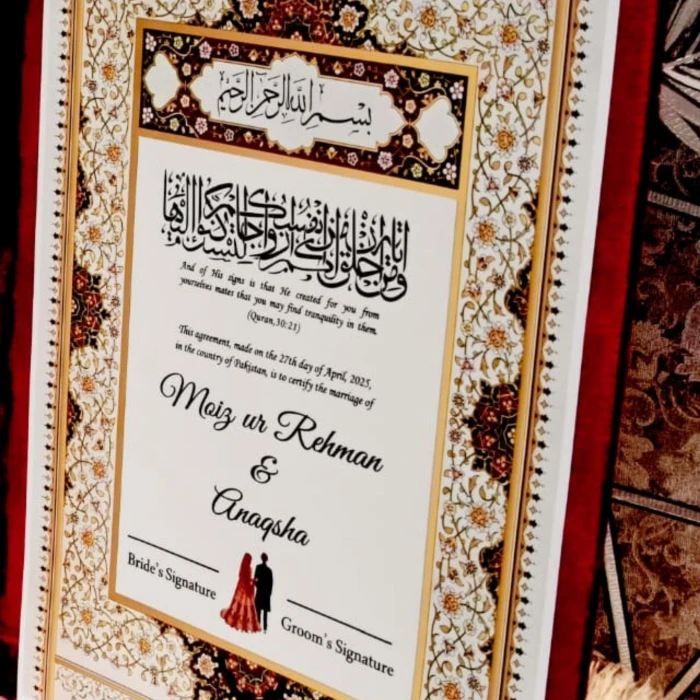 بسم الله الرحمن الرحيم
ومن آياته أن خلق لكم من أنفسكم أزواجا لتسكنوا إليها
And of His signs is that He created for you from
yourselves mates that you may find tranquility in them.
(Quran,30:21)
This agreement, made on the 27th day of April, 2025,
in the country of Pakistan, is to certify the marriage of
Moiz ur Rehman
&
Anaqsha
Bride's Signature
Groom's Signature